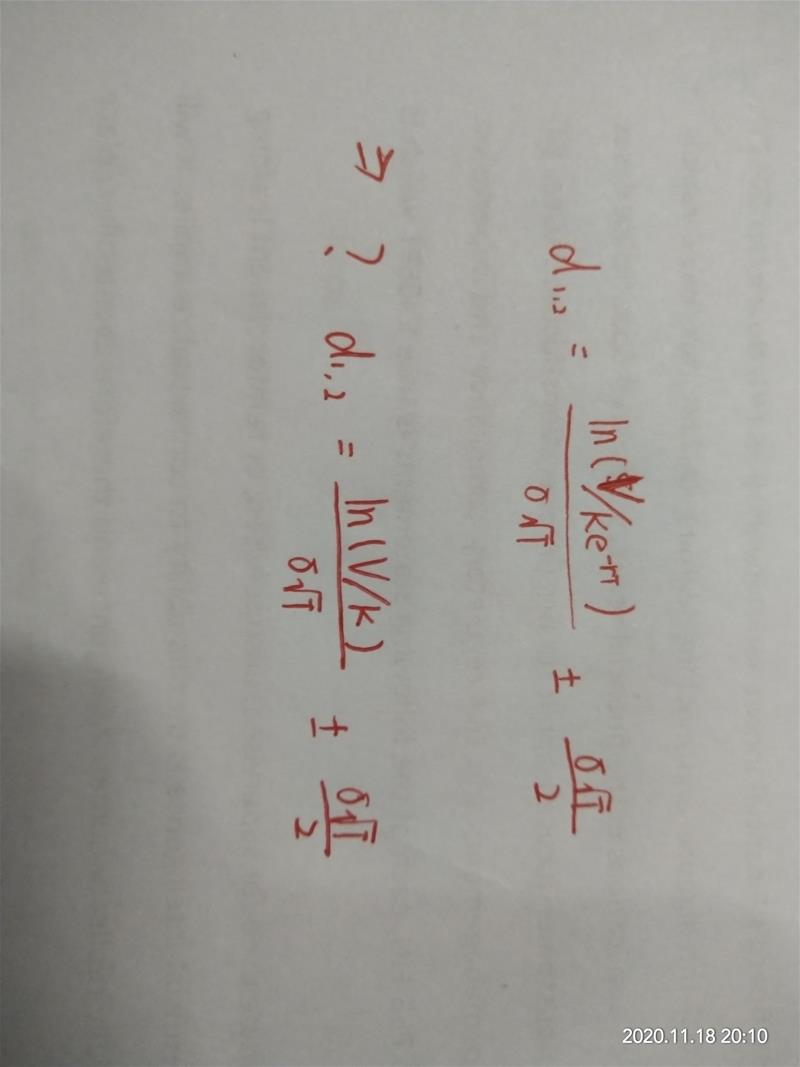 d₁,₂ = ln(V/Ke^-rT) / σ√T ± σ√T / 2
⇒ ? d₁,₂ = ln(V/K) / σ√T ± σ√T / 2
2020.11.18 20:10